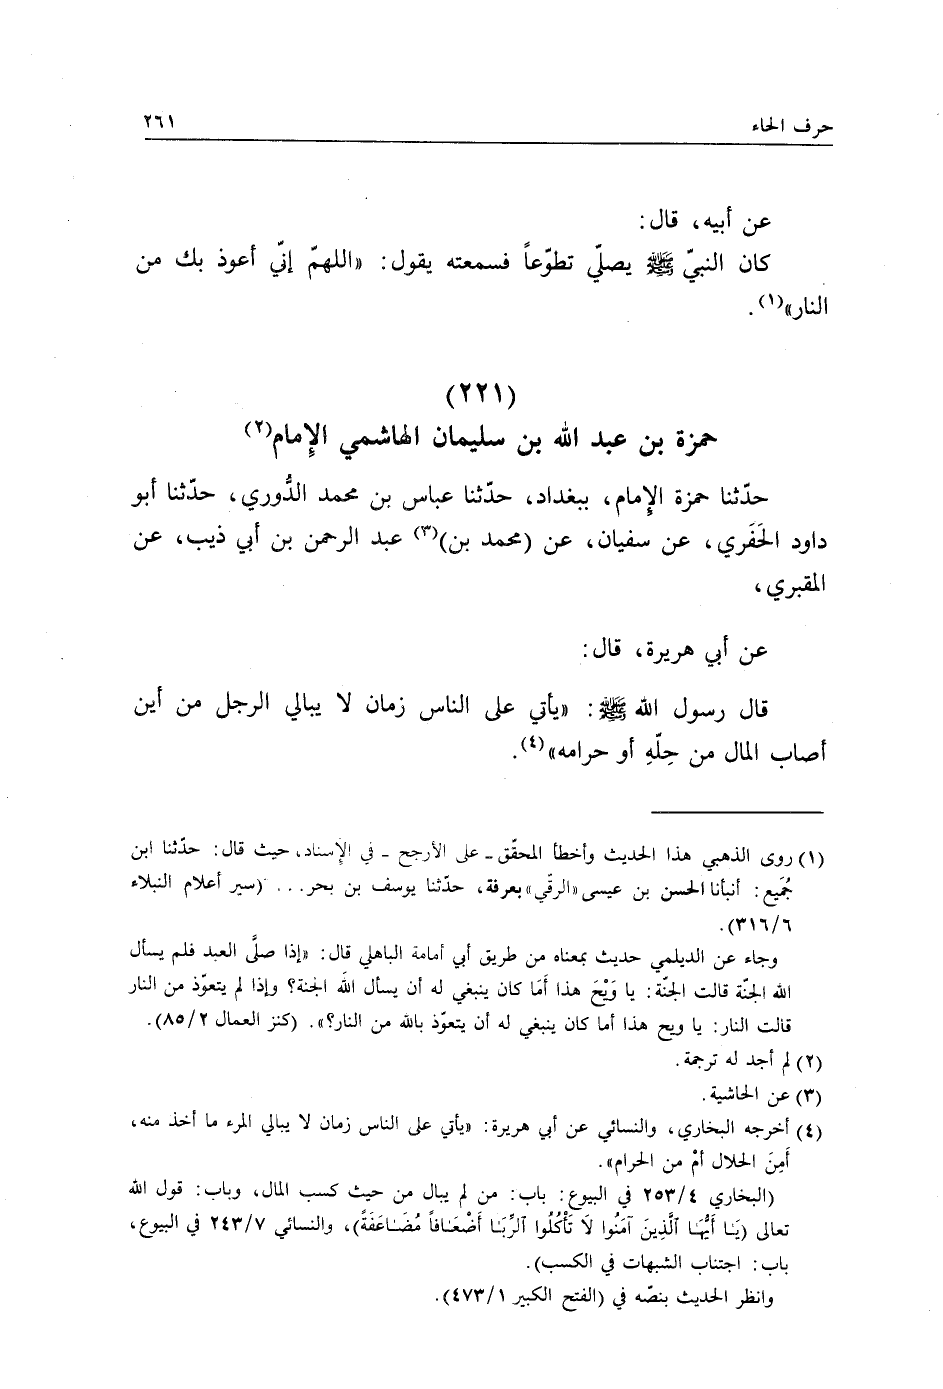 حرف الحاء ٢٦١
عن أبيه، قال:
كان النبيّ ﷺ يصلّي تطوّعاً فسمعته يقول: «اللهمّ إنّي أعوذ بك من
النار»(١).
(٢٢١)
حمزة بن عبد الله بن سليمان الهاشمي الإِمام(٢)
حدّثنا حمزة الإِمام، ببغداد، حدّثنا عباس بن محمد الدُّوري، حدّثنا أبو
داود الحَفَري، عن سفيان، عن (محمد بن)(٣) عبد الرحمن بن أبي ذيب، عن
المقبري،
عن أبي هريرة، قال:
قال رسول الله ﷺ: «يأتي على الناس زمان لا يبالي الرجل من أين
أصاب المال من حِلّهِ أو حرامه»(٤).
(١) روى الذهبي هذا الحديث وأخطأ المحقّق - على الأرجح - في الإِسناد، حيث قال: حدّثنا ابن
جُمَيع: أنبأنا الحسن بن عيسى «الرقّي» بعرفة، حدّثنا يوسف بن بحر... (سير أعلام النبلاء
٣١٦/٦).
وجاء عن الديلمي حديث بمعناه من طريق أبي أمامة الباهلي قال: «إذا صلَّى العبد فلم يسأل
الله الجنّة قالت الجنّة: يا وَيْحَ هذا أمَا كان ينبغي له أن يسأل الله الجنة؟ وإذا لم يتعوّذ من النار
قالت النار: يا ويح هذا أما كان ينبغي له أن يتعوّذ بالله من النار؟». (كنز العمال ٨٥/٢).
(٢) لم أجد له ترجمة.
(٣) عن الحاشية.
(٤) أخرجه البخاري، والنسائي عن أبي هريرة: «يأتي على الناس زمان لا يبالي المرء ما أخذ منه،
أَمِنَ الحلال أمْ من الحرام».
(البخاري ٢٥٣/٤ في البيوع: باب: من لم يبال من حيث كسب المال، وباب: قول الله
تعالى (يَـا أَيُّهَا ٱلَّذِينَ آمَنُوا لَا تَأْكُلُوا ٱلرِّبَـا أَضْعَـافاً مُضَـاعَفَةً)، والنسائي ٢٤٣/٧ في البيوع،
باب: اجتناب الشبهات في الكسب).
وانظر الحديث بنصّه في (الفتح الكبير ٤٧٣/١).